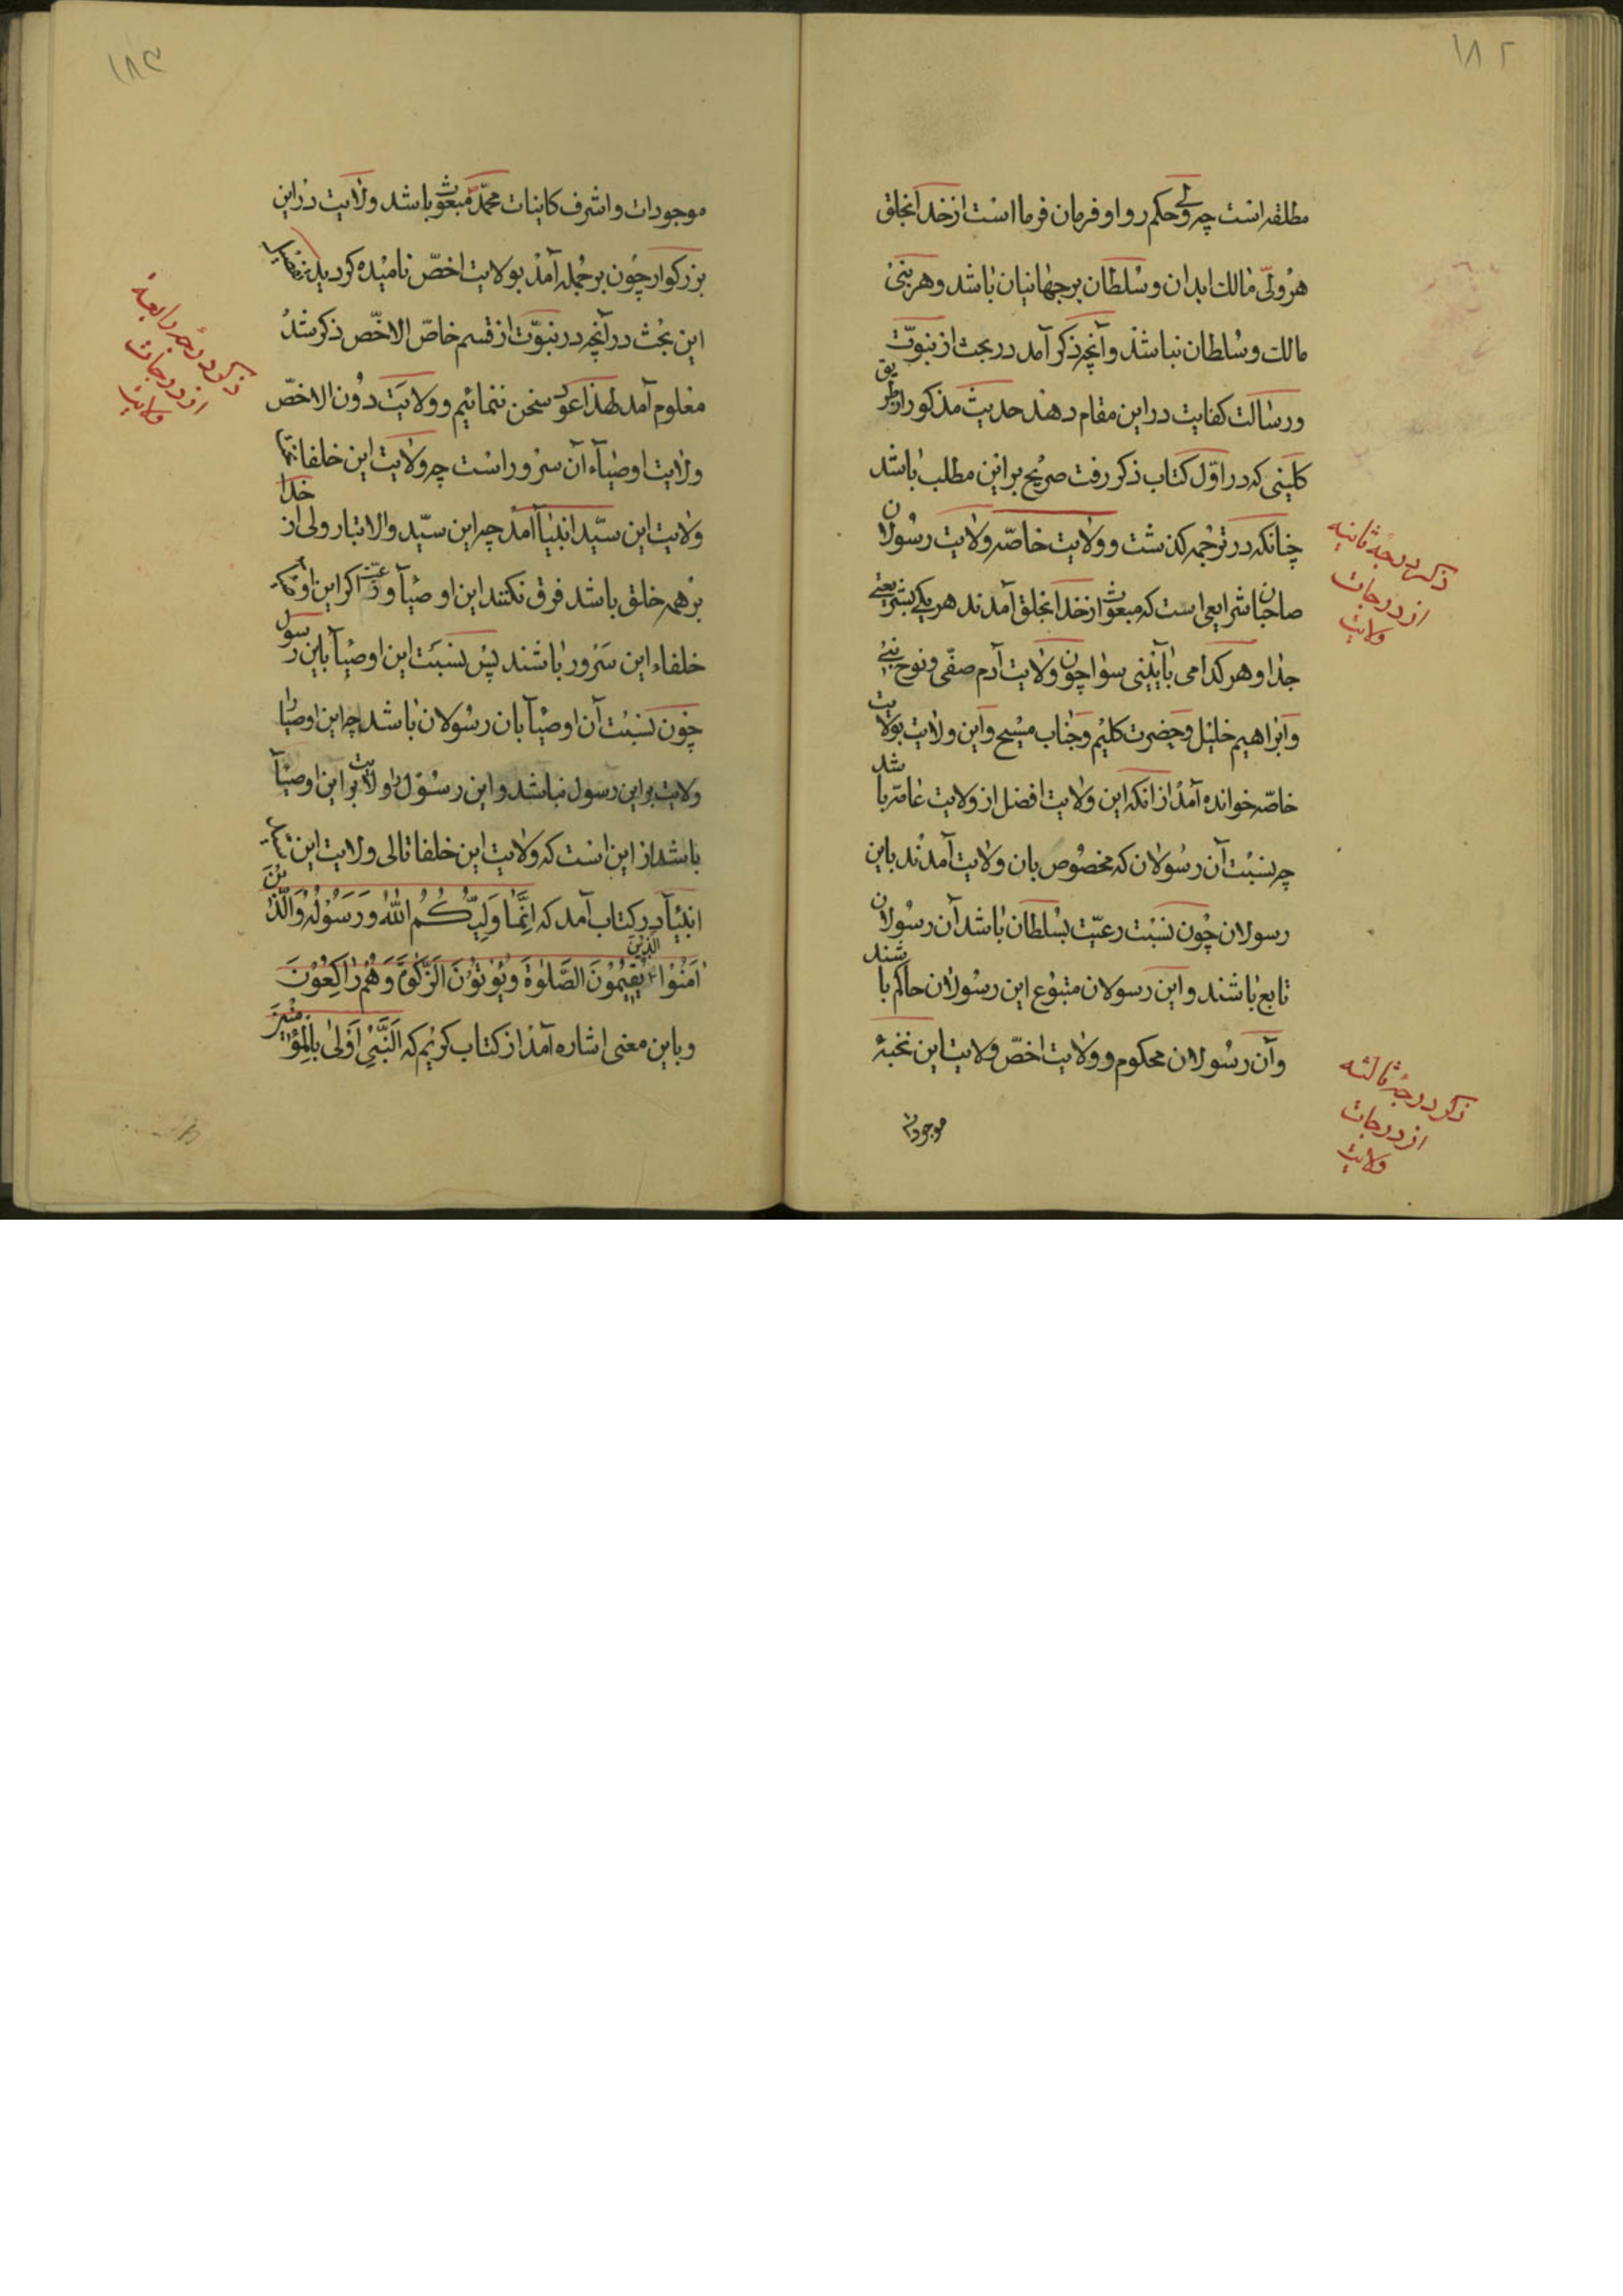 ۱۸۲
مطلقه است چه ولی حکم روا و فرمان فرما است از خدا بخلق
هر ولیّ مالک ابدان و سلطان بر جهانیان باشد و هر نبیّ
مالک و سلطان نباشد و آنچه ذکر آمد در بحث از نبوّت
و رسالت کفایت در این مقام دهند حدیث مذکور از طریق
کلینی که در اوّل کتاب ذکر رفت صریح بر این مطلب باشد
چنانکه در ترجمه کذشت و ولایت خاصّه ولایت رسولان
صاحبان شرایعی است که مبعوث از خدا بخلق آمدند هر یکی بشریعتی
جدا و هر کدامی بآیینی سوا چون ولایت آدم صفی و نوح نبی
و ابراهیم خلیل و حضرت کلیم و جناب مسیح و این ولایت بولایت
خاصّه خوانده آمد از انکه این ولایت افضل از ولایت عامّه باشد
چه نسبت آن رسولان که مخصوص بان ولایت آمدند باین
رسولان چون نسبت رعیّت بسلطان باشد آن رسولان
تابع باشند و این رسولان متبوع این رسولان حاکم باشند
و آن رسولان محکوم و ولایت اخصّ ولایت این نخبهٔ
موجودات
ذکر درجهٔ ثانیه
از درجات
ولایت
ذکر درجهٔ ثالثه
از درجات
ولایت
۱۸۳
موجودات و اشرف کاینات محمّد مبعوث باشد ولایت در این
بزرکوار چون بر جمله آمد بولایت اخصّ نامیده کردید تفصیل
این بحث در آنچه در نبوّت از قسم خاصّ الاخصّ ذکر شد
معلوم آمد لهذا عود سخن ننمائیم و ولایت دون الاخصّ
ولایت اوصیآء آن سرور است چه ولایت این خلفا
ولایت این سیّد انبیآ آمد چه این سیّد والاتبار ولی از خدا
بر همه خلق باشد فرق نکنند این اوصیآ و اکر این
خلفاء این سرور باشند پس نسبت این اوصیآ باین رسول
چون نسبت آن اوصیآ بان رسولان باشد چه این اوصیا را
ولایت بر این رسول نباشد و این رسول را ولایت بر این اوصیآ
باشد از این است که ولایت این خلفا تالی ولایت این
انبیآ در کتاب آمد که اِنَّمٰا وَلِیُّکُمُ اللّٰهُ وَرَسُوْلُهُ وَالَّذٖیْنَ
اٰمَنُوْا الَّذٖینَ یُقٖیْمُوْنَ الصَّلٰوةَ وَیُؤْتُوْنَ الزَّکٰوةَ وَهُمْ رٰاکِعُوْنَ
و باین معنی اشاره آمد از کتاب کریم که اَلنَّبِیُّ اَوْلٰی بِالْمُؤْمِنٖیْنَ
ذکر درجهٔ رابعه
از درجات
ولایت